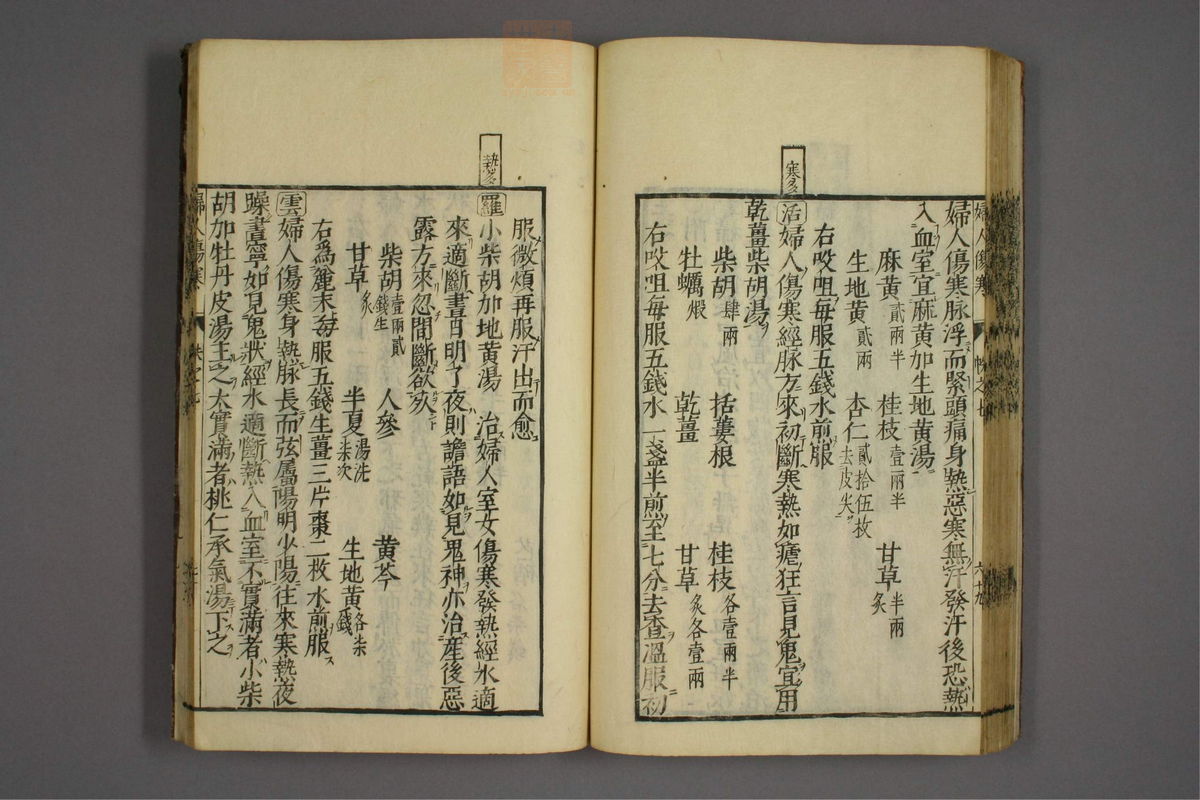 婦人傷寒脉浮而緊頭痛身熱惡寒無汗發汗後恐熱
入血室宜麻黄加生地黄湯
麻黄貳兩半 桂枝壹兩半 甘草半兩炙
生地黄貳兩 杏仁貳拾伍枚去皮尖
右㕮咀每服五錢水煎服
寒多
活婦人傷寒經脉方來初斷寒熱如瘧狂言見鬼宜用
乾薑柴胡湯
柴胡肆兩 括蔞根 桂枝各壹兩半
牡蠣煅 乾薑 甘草炙各壹兩
右㕮咀每服五錢水一盞半煎至七分去查溫服初
服微煩再服汗出而愈
熱多
羅小柴胡加地黄湯 治婦人室女傷寒發熱經水適
來適斷晝日明了夜則譫語如見鬼神亦治産後惡
露方來忽間斷欲死
柴胡壹兩貳錢生 人參 黄芩
甘草炙 半夏湯洗柒次 生地黄各柒錢
右爲麄末每服五錢生薑三片棗二枚水煎服
雲婦人傷寒身熱脉長而弦屬陽明少陽往來寒熱夜
躁晝寧如見鬼狀經水適斷熱入血室不實滿者小柴
胡加牡丹皮湯主之大實滿者桃仁承氣湯下之
婦人傷寒